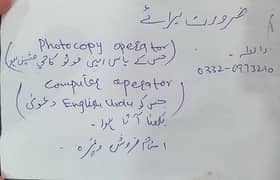 ضرورت برائے
Photocopy operator
(جس کے پاس اپنی فوٹو کاپی مشین ہو)
رابطہ -
0332-6973210
Computer operator
(جس کو English Urdu
لکھنا آتا ہو۔
اسٹام فروش وغیرہ -